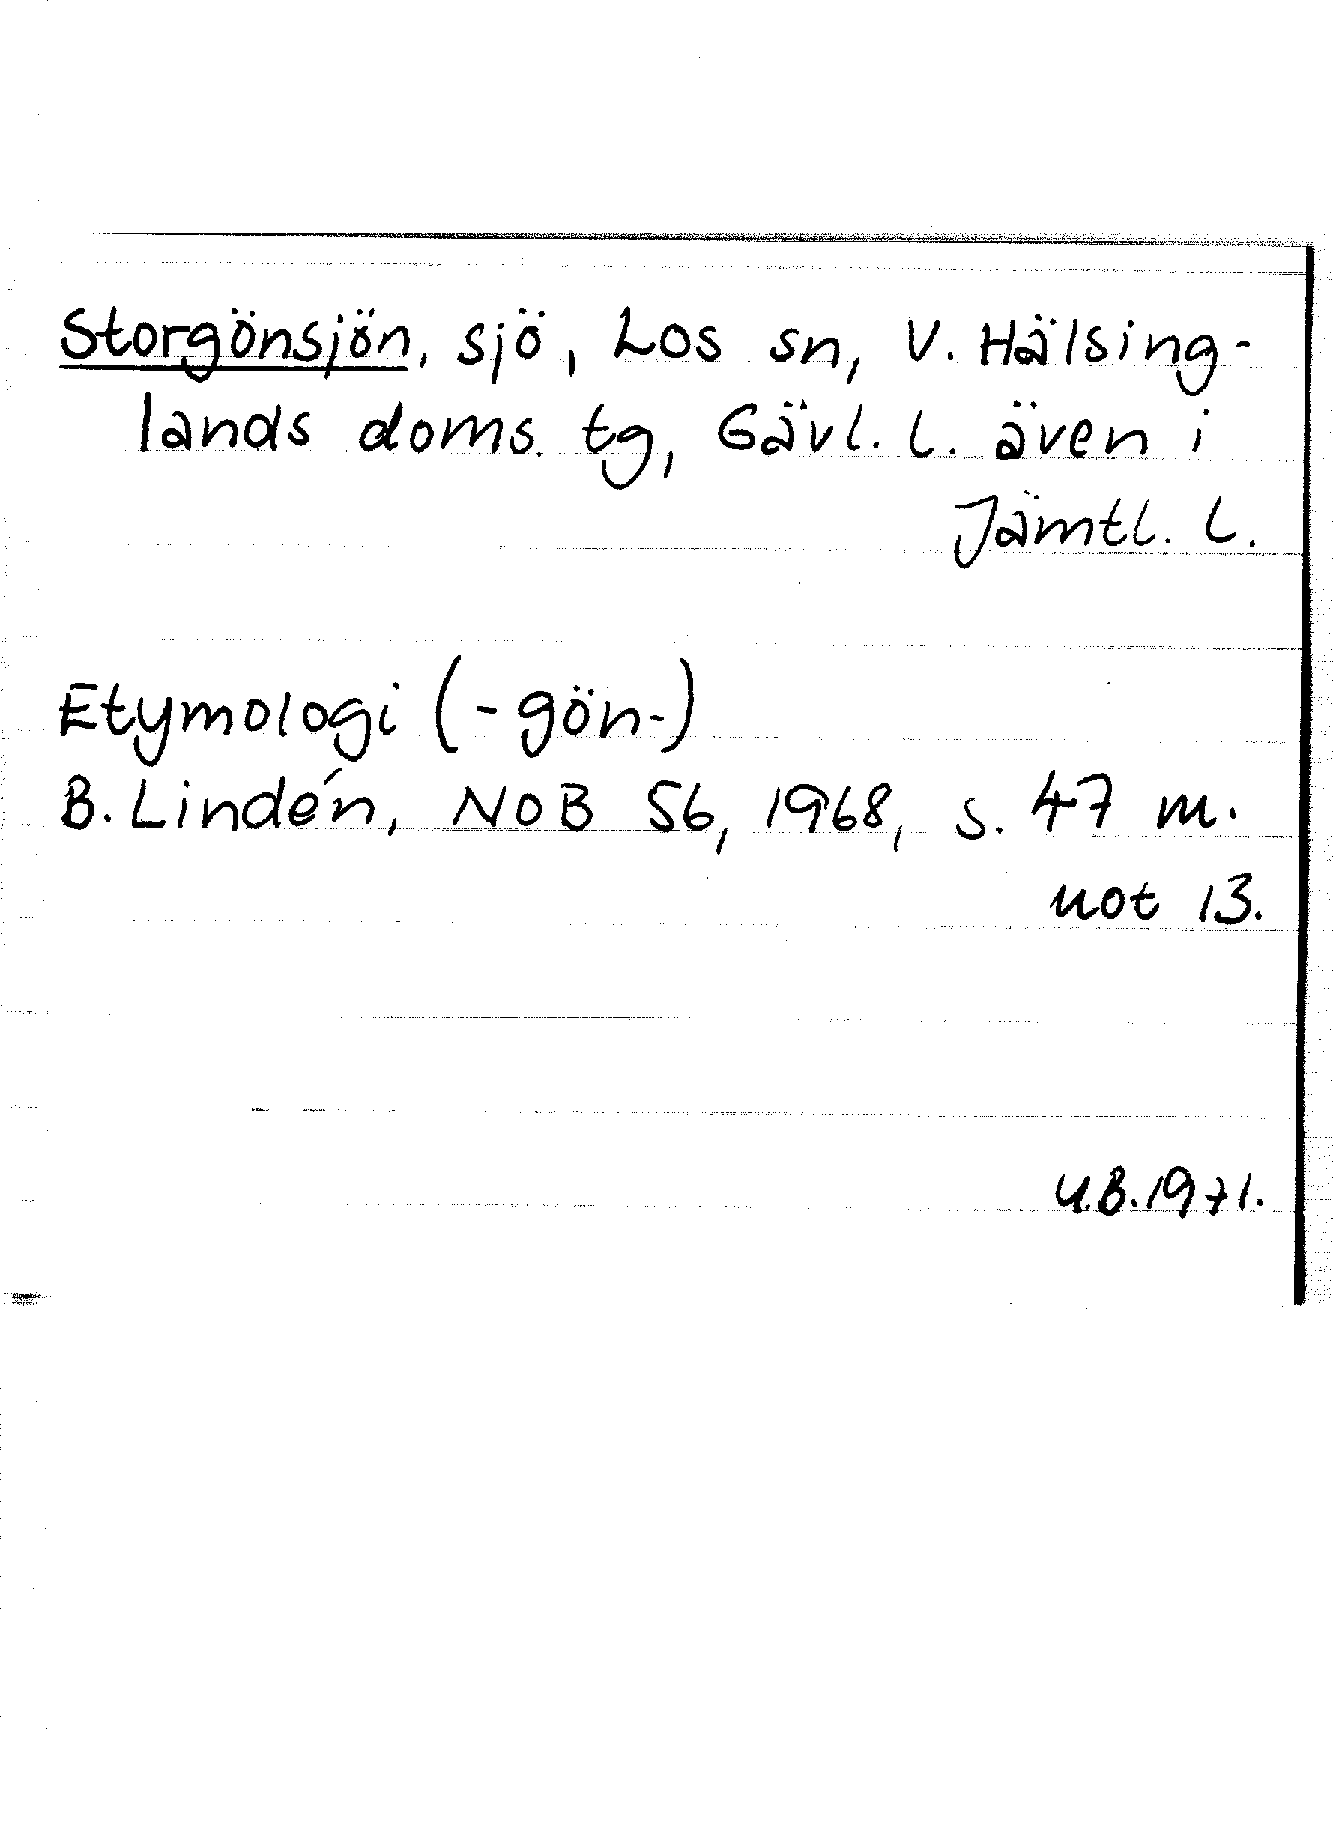 Storgönsjön, sjö, Los sn, V. Hälsing-
lands doms. tg, Gävl. l. även i
Jämtl. l.
Etymologi (-gön-)
B. Lindén, NoB 56, 1968, s. 47 m.
not 13.
U.B. 1971.